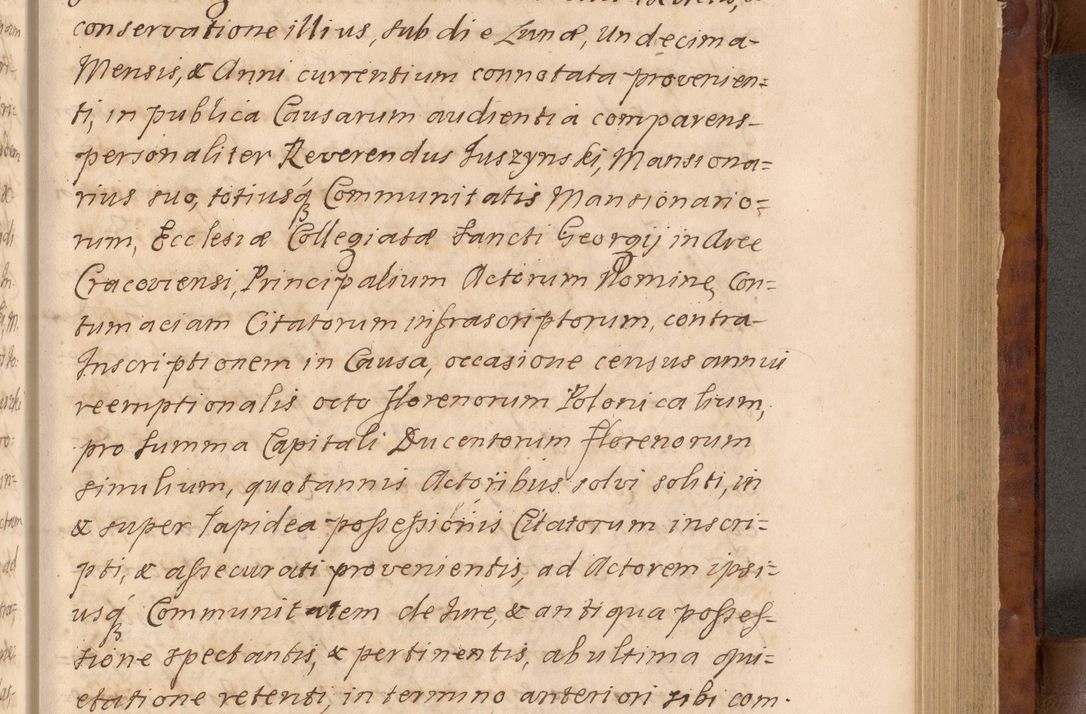 conservatione illius, sub die Lunæ, Undecima-
Mensis, & Anni currentium connotata provenien=
ti, in publica Causarum audientia comparens-
personaliter Reverendus Juszynski, Mansiona=
rius suo, totiusq́ʒ Communitatis Mansionario=
rum, Ecclesiæ Collegiatæ Sancti Georgij in Arce
Cracoviensi, Principalium Actorum Nomine, Con=
tumaciam Citatorum infrascriptorum, contra-
Inscriptionem in Causa, occasione census annui
reemptionalis octo florenorum Polonicalium,
pro Summa Capitali Ducentorum florenorum
similium, quotannis Actoribus solvi soliti, in
& super lapidea possessionis Citatorum inscri=
pti, & assecurati provenientis, ad Actorem ipsi=
usq́ʒ Communitatem de Jure, & antiqua posses=
sione spectantis, & pertinentis, ab ultima qui=
etatione retenti, in termino anteriori sibi com-